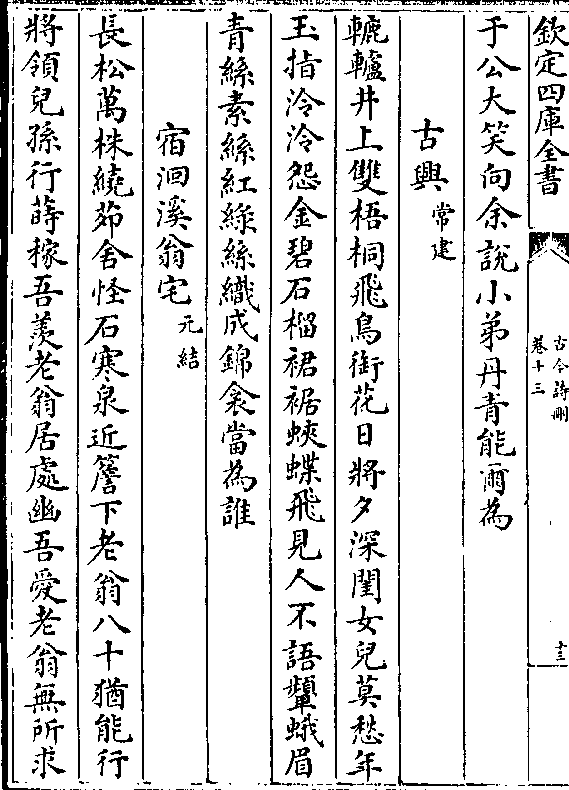 欽定四庫全書
古今詩刪
卷十三
十三
于公大笑向余說小弟丹青能爾為
古興常建
轆轤井上雙梧桐飛鳥銜花日將夕深閨女兒莫愁年
玉指泠泠怨金碧石榴裙裾蛺蝶飛見人不語顰蛾眉
青絲素絲紅綠絲織成錦衾當為誰
宿洄溪翁宅元結
長松萬株繞茆舍怪石寒泉近簷下老翁八十猶能行
將領兒孫行蒔稼吾羨老翁居處幽吾愛老翁無所求